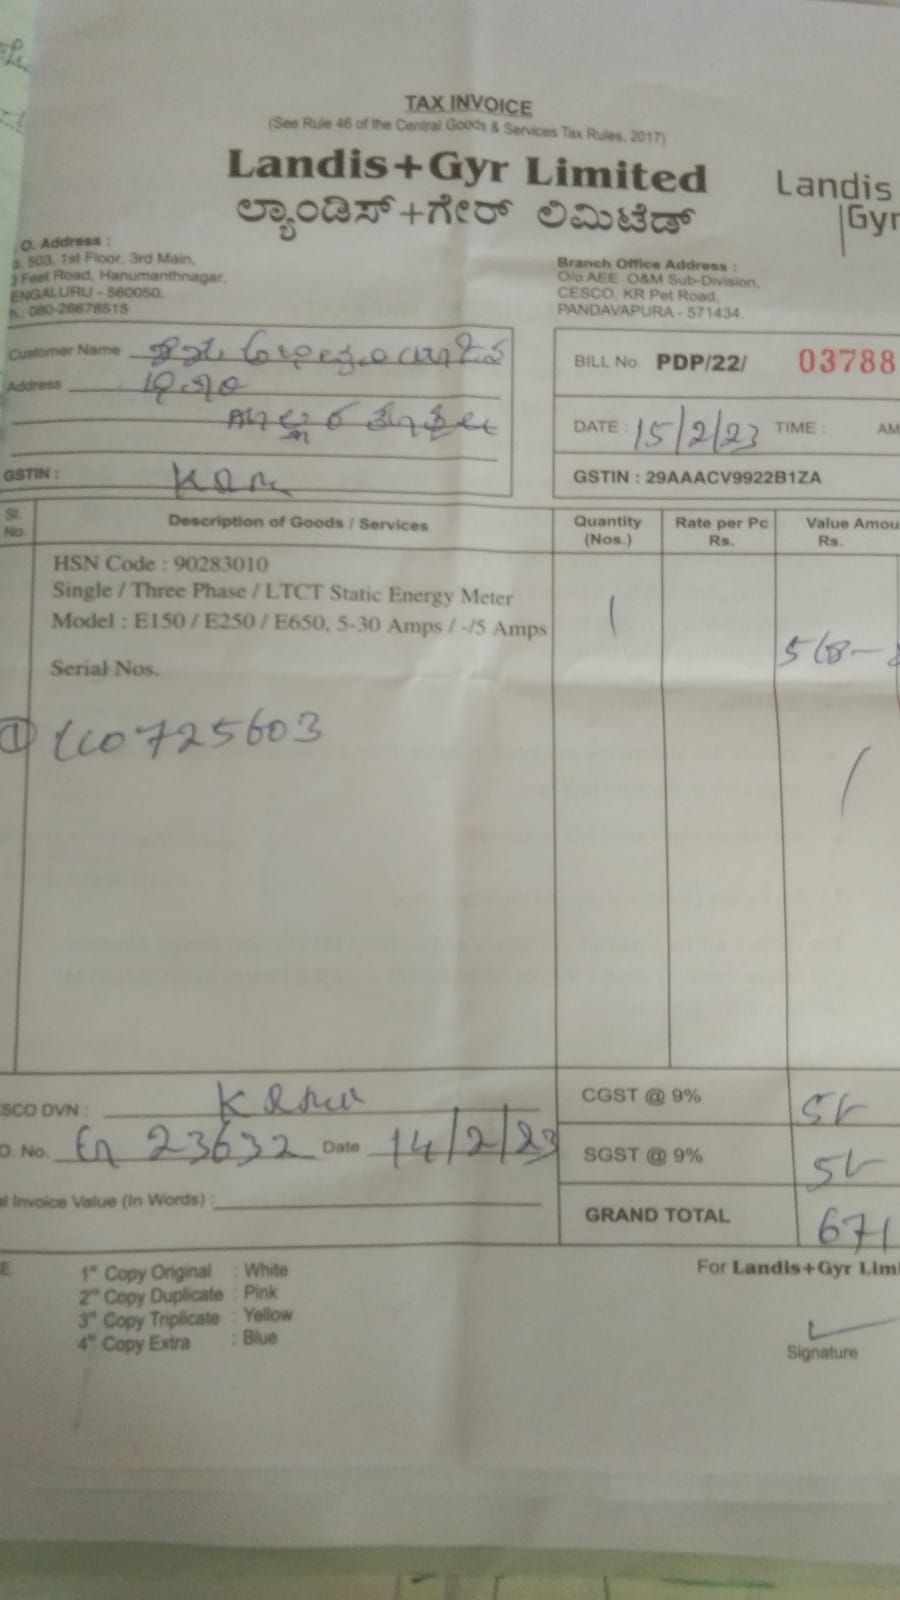 TAX INVOICE
(See Rule 46 of the Central Goods & Services Tax Rules, 2017)
Landis+Gyr Limited
ಲ್ಯಾಂಡಿಸ್+ಗೇರ್ ಲಿಮಿಟೆಡ್
Landis
Gyr
O. Address :
503, 1st Floor, 3rd Main,
Feet Road, Hanumanthnagar,
ENGALURU - 560050.
080-26678515
Branch Office Address :
O/o AEE O&M Sub-Division,
CESCO, KR Pet Road,
PANDAVAPURA - 571434.
Customer Name
Address
GSTIN :
BILL No. PDP/22/ 03788
DATE : 15/2/23 TIME : AM
GSTIN : 29AAACV9922B1ZA
Sl. No.
Description of Goods / Services
Quantity (Nos.)
Rate per Pc Rs.
Value Amou
Rs.
HSN Code : 90283010
Single / Three Phase / LTCT Static Energy Meter
Model : E150 / E250 / E650, 5-30 Amps / -/5 Amps
1
Serial Nos.
0725603
SCO DVN :
O. No. 23632 Date 14/2/23
Invoice Value (In Words) :
CGST @ 9%
SGST @ 9%
GRAND TOTAL 671
1st Copy Original : White
2nd Copy Duplicate : Pink
3rd Copy Triplicate : Yellow
4th Copy Extra : Blue
For Landis+Gyr Lim
Signature